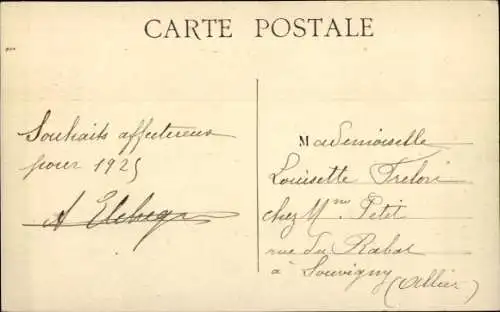 CARTE POSTALE
Souhaits affectueux
pour 1925
Mademoiselle
Louisette
chez Mme Petit
rue du Rabat
à Souvigny
(Allier)